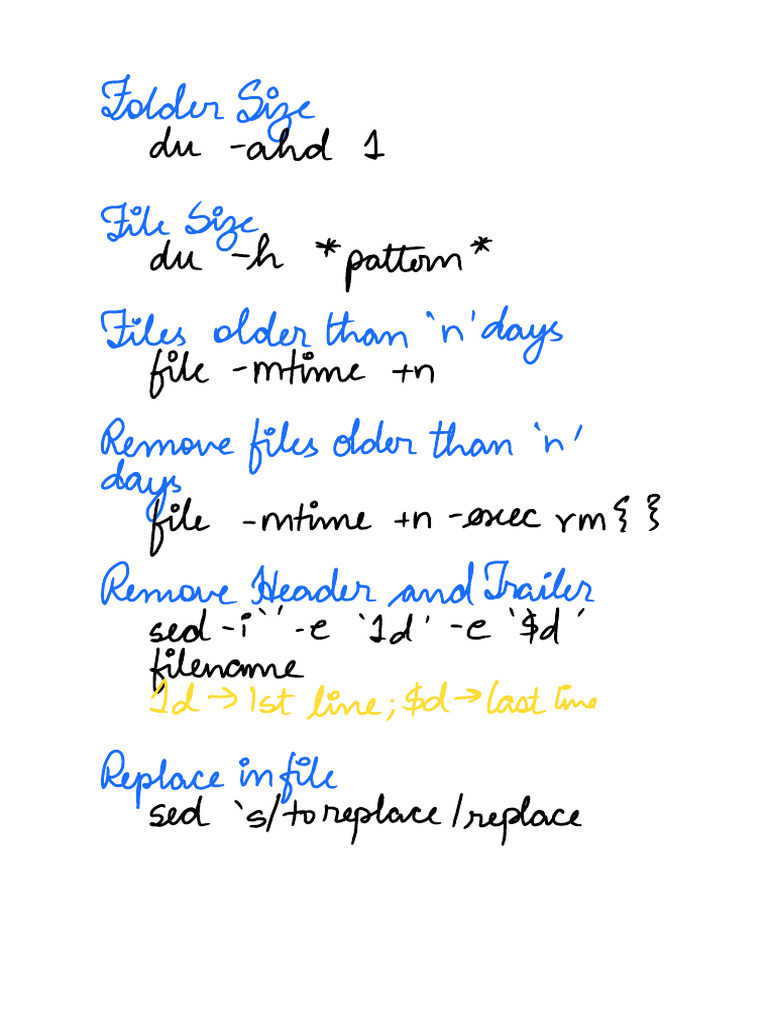 Folder Size
du -ahd 1
File Size
du -h *pattern*
Files older than `n' days
file -mtime +n
Remove files older than `n'
days
file -mtime +n -exec rm { }
Remove Header and Trailer
sed -i `' -e `1d' -e `$d'
filename
1d → 1st line; $d → last line
Replace in file
sed `s/toreplace/replace